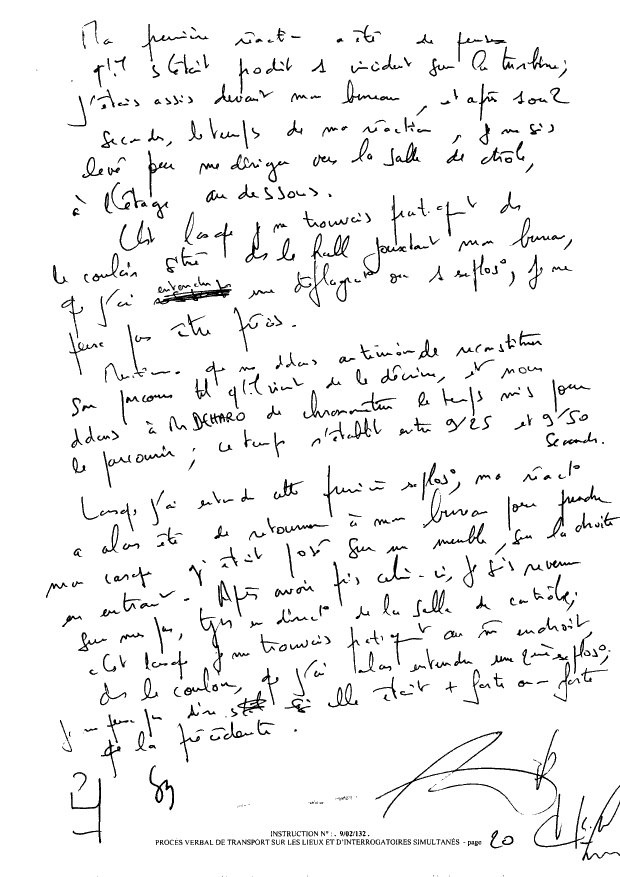 Ma première réact° a été de penser
qu'il s'était produit 1 incident sur la turbine;
j'étais assis devant mon bureau, et après 1 ou 2
secondes, le temps de ma réaction, je me sis
levé pour me diriger vers la salle de ctrôle,
à l'étage au dessous.
C'est lorsque je me trouvais pratiqt ds
le couloir situé ds le hall jouxtant mon bureau,
que j'ai entendu une déflagrat° ou 1 explos°, je ne
peux pas être précis.
Mentionns que ns ddons au témoin de reconstituer
son parcours tel qu'il vient de le décrire, et nous
ddons à Mr DEHARO de chronométrer le temps mis pour
le parcourir; ce temps s'établit entre 9/25 et 9/50
secondes.
Lorsque j'ai entendu cette première explos°, ma réact°
a alors été de retourner à mon bureau pour prendre
mon casque qui était posé sur un meuble, sur la droite
en entrant. Après avoir pris celui-ci, je sis revenu
sur mes pas, tjrs en direct° de la salle de contrôle;
c'est lorsque je me trouvais pratiqt au m̂ endroit,
ds le couloir, que j'ai alors entendu une 2ème explos°;
je ne peux pas dire si elle était + forte ou - forte
que la précédente.
INSTRUCTION N° : . 9/02/132 .
PROCES VERBAL DE TRANSPORT SUR LES LIEUX ET D'INTERROGATOIRES SIMULTANÉS - page 20